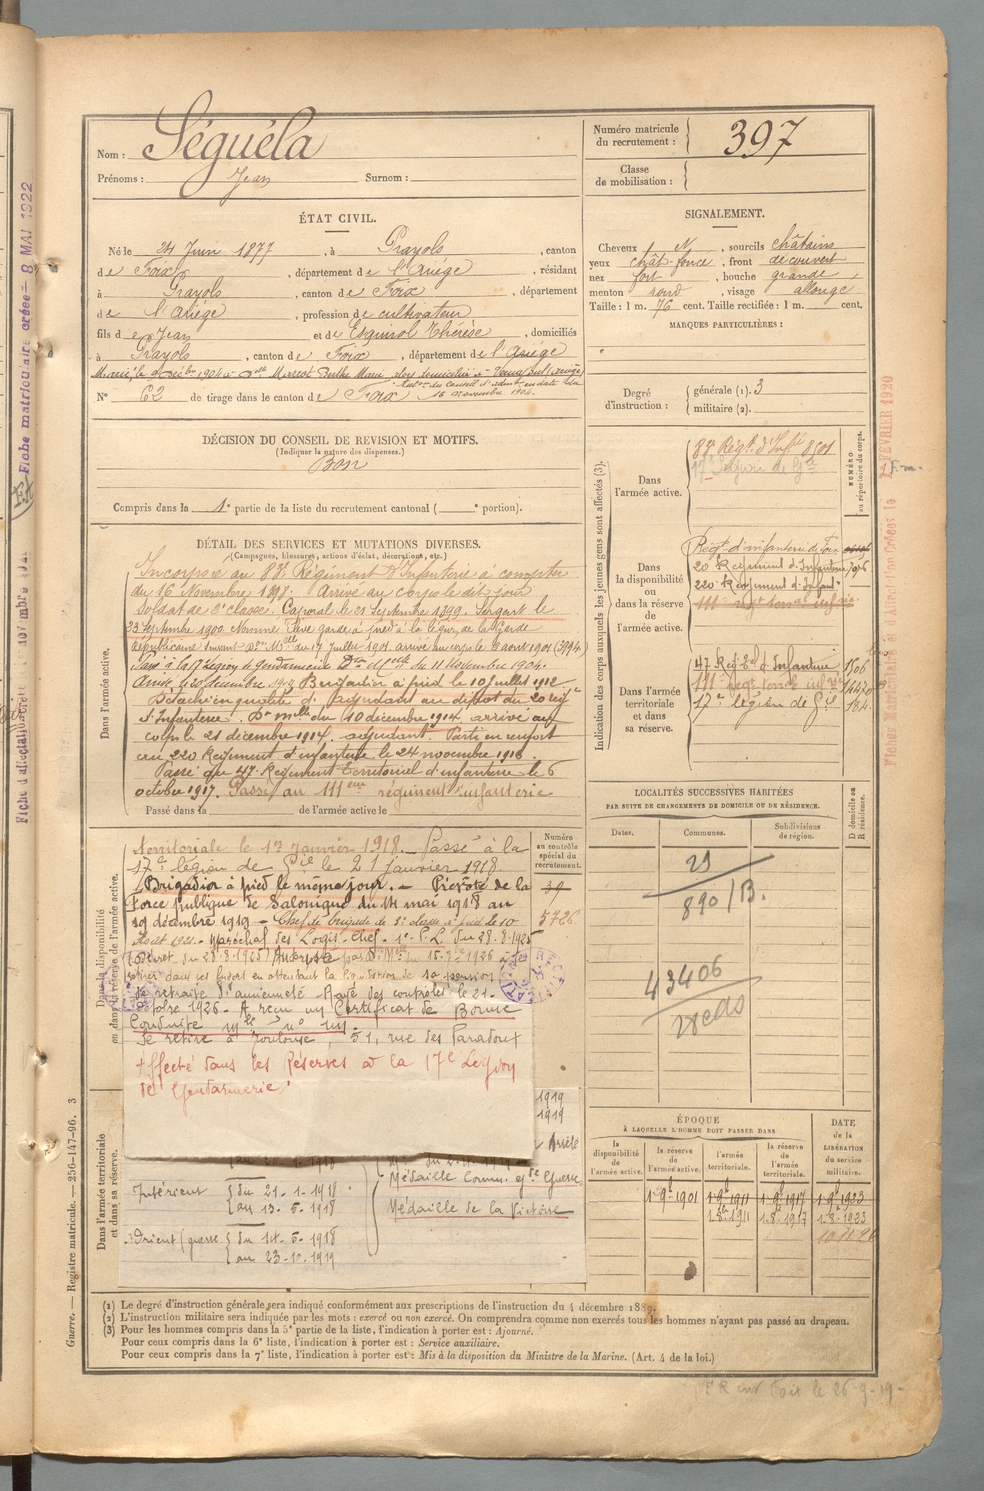 Nom : Séguéla
Prénoms : Jean Surnom :
Numéro matricule du recrutement : 397
Classe de mobilisation :
ÉTAT CIVIL.
Né le 24 Juin 1877, à Prayols, canton
de Foix, département de l'Ariège, résidant
à Prayols, canton de Foix, département
de l'Ariège, profession de cultivateur
fils de Jean et de Esquirol Thérèse, domiciliés
à Prayols, canton de Foix, département de l'Ariège
N° 62 de tirage dans le canton de Foix
16 novembre 1904.
SIGNALEMENT.
Cheveux N, sourcils châtains
yeux chât. foncé, front découvert
nez fort, bouche grande,
menton rond, visage allongé
Taille : 1 m. 76 cent. Taille rectifiée : 1 m. cent.
MARQUES PARTICULIÈRES :
Degré d'instruction : générale (1). 3
militaire (2).
DÉCISION DU CONSEIL DE REVISION ET MOTIFS.
(Indiquer la nature des dispenses.)
Bon
Compris dans la 1e partie de la liste du recrutement cantonal ( e portion).
DÉTAIL DES SERVICES ET MUTATIONS DIVERSES.
(Campagnes, blessures, actions d'éclat, décorations, etc.)
Dans l'armée active.
Incorporé au 83e Régiment d'Infanterie à compter
du 16 Novembre 1898. Arrivé au corps le dit jour
Soldat de 2e classe. Caporal le 21 Septembre 1899. Sergent le
23 Septembre 1900. Nommé Elève garde à pied à la légion de la Garde
Républicaine du 17 Juillet 1901 arrivé au corps le août 1901 (3194)
Passé à la 17e Légion de Gendarmerie du 11 Novembre 1904.
Arrivé le 20 décembre Brigadier à pied le 10 Juillet 1912
Détaché en qualité d'adjudant au dépôt du 20 régt
d'Infanterie. Don mlle du 10 décembre 1914. arrivé au
corps le 21 décembre 1914. adjudant. Parti en renfort
au 220 Régiment d'infanterie le 24 novembre 1916.
Passé au 47e Régiment Territorial d'infanterie le 6
octobre 1917. Passé au 111eme régiment d'infanterie
Passé dans la de l'armée active le
Dans la disponibilité ou dans la réserve de l'armée active.
Territoriale le 1er Janvier 1918. Passé à la
17e légion de Gie le 21 janvier 1918
Brigadier à pied le même jour. — Prévôté de la
Force publique de Salonique du 14 mai 1918 au
19 décembre 1919 — Chef de brigade de 3e classe à pied le 10
Août 1921. — Maréchal des Logis-Chef du 28.8.1925
(Décret du 28-8-1925)
retirer dans ses foyers en attendant la liquidation de sa pension
de retraite d'ancienneté Rayé des contrôles le 21.
Octobre 1926. A reçu un Certificat de Bonne
Conduite
Se retire à Toulouse, 51, rue des Paradoux
Affecté dans les Réserves à la 17e Légion
de Gendarmerie.
Numéro au contrôle spécial du recrutement.
5726
Dans l'armée territoriale et dans sa réserve.
1919
1919
Arrêté
Médaille Comm. gde Guerre
Médaille de la Victoire
Intérieur du 21-1-1918
au 13-5-1918
Orient (guerre) du 14-5-1918
au 23-12-1919
Indication des corps auxquels les jeunes gens sont affectés (3).
NUMÉRO au répertoire du corps.
Dans l'armée active.
83e Régt d'Infie 8501
17e Légion de Gie
Dans la disponibilité ou dans la réserve de l'armée active.
Régt d'infanterie de Foix
20e Régiment d'Infanterie 7096
220e Régiment d'Infantie
Dans l'armée territoriale et dans sa réserve.
47 Régt Tal d'Infanterie 1506
111e régt territ infrie 14470
17e légion de Gie 184
LOCALITÉS SUCCESSIVES HABITÉES
PAR SUITE DE CHANGEMENTS DE DOMICILE OU DE RÉSIDENCE.
Dates. Communes. Subdivisions de région. D domicile ou R résidence.
29
890/B.
43406
ÉPOQUE
À LAQUELLE L'HOMME DOIT PASSER DANS
la disponibilité de l'armée active. la réserve de l'armée active. l'armée territoriale. la réserve de l'armée territoriale.
DATE de la LIBÉRATION du service militaire.
1-9-1901 1-9-1911 1-9-1917 1-9-1923
1-8-1911 1-8-1917 1-8-1923
(1) Le degré d'instruction générale sera indiqué conformément aux prescriptions de l'instruction du 4 décembre 1889.
(2) L'instruction militaire sera indiquée par les mots : exercé ou non exercé. On comprendra comme non exercés tous les hommes n'ayant pas passé au drapeau.
(3) Pour les hommes compris dans la 5e partie de la liste, l'indication à porter est : Ajourné.
Pour ceux compris dans la 6e liste, l'indication à porter est : Service auxiliaire.
Pour ceux compris dans la 7e liste, l'indication à porter est : Mis à la disposition du Ministre de la Marine. (Art. 4 de la loi.)
Guerre. — Registre matricule. — 256-147-96. 3
Fiche matriculaire créée - 8 MAI 1922
Fiches Matriculaire et d'Affectation Créées le FÉVRIER 1920